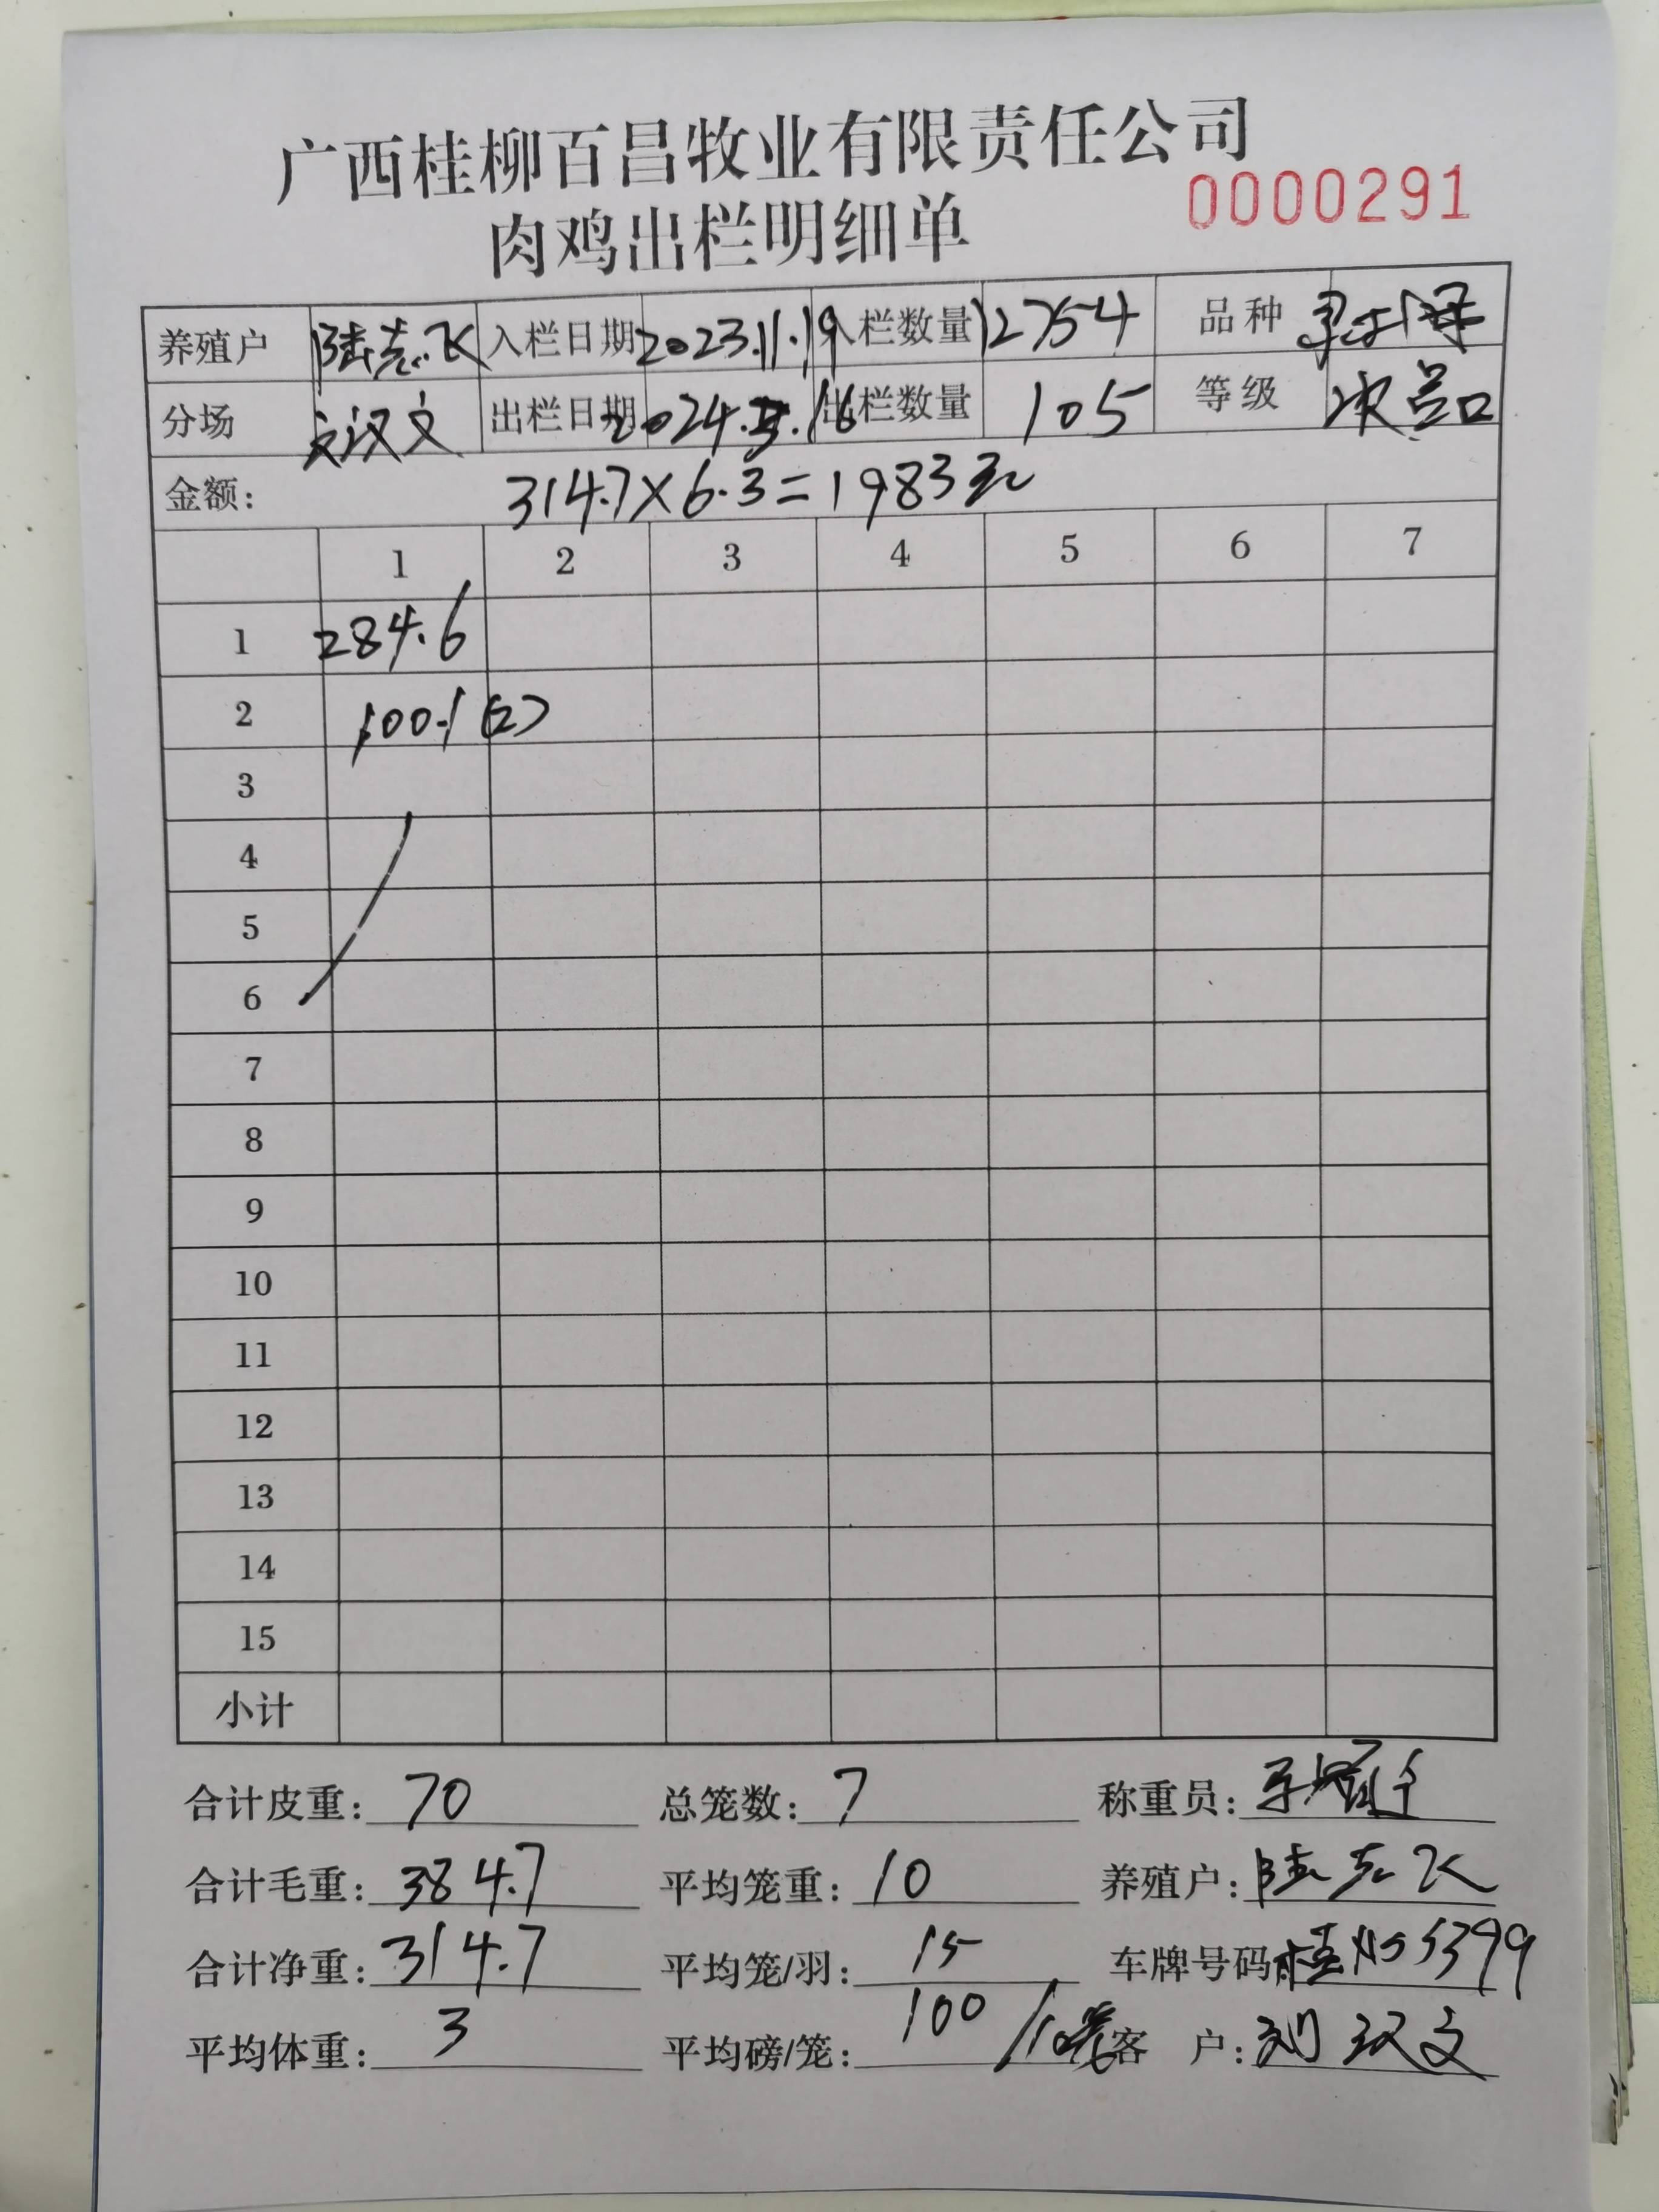 广西桂柳百昌牧业有限责任公司
0000291
肉鸡出栏明细单
养殖户 入栏日期 2023.11.19 入栏数量 12754 品种
分场 汉文 出栏日期 2024.3.16 出栏数量 105 等级 次品
金额: 314.7×6.3=1983元
1 2 3 4 5 6 7
1 284.6
2 100.1 (2)
3
4
5
6
7
8
9
10
11
12
13
14
15
小计
合计皮重: 70 总笼数: 7 称重员:
合计毛重: 384.7 平均笼重: 10 养殖户:
合计净重: 314.7 平均笼/羽: 15 车牌号码: 桂
平均体重: 3 平均磅/笼: 100 客 户: 刘汉文